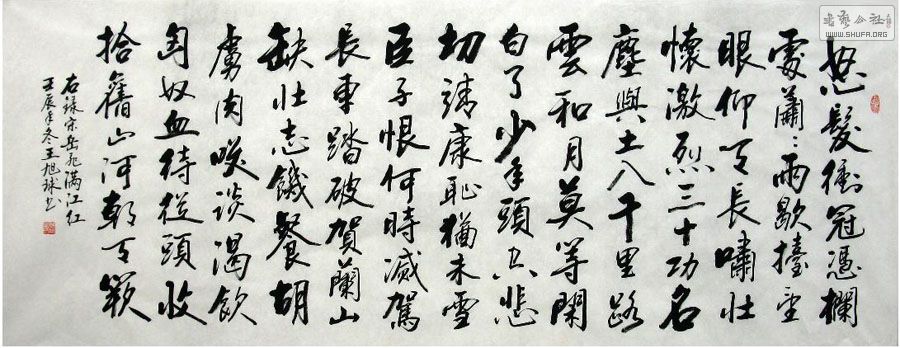 怒髮衝冠憑欄
處蕭:雨歇擡望
眼仰天長嘯壯
懷激烈三十功名
塵與土八千里路
雲和月莫等閑
白了少年頭空悲
切靖康恥猶未雪
臣子恨何時滅駕
長車踏破賀蘭山
缺壯志饑餐胡
虜肉咲談渴飲
匈奴血待從頭收
拾舊山河朝天闕
右録宋岳飛滿江紅
壬辰年冬王旭球書
书艺公社
WWW.SHUFA.ORG